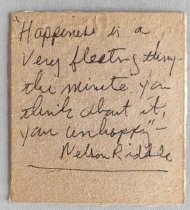 "Happiness is a
very fleeting thing -
the minute you
think about it,
your unhappy" -
Nelson Riddle